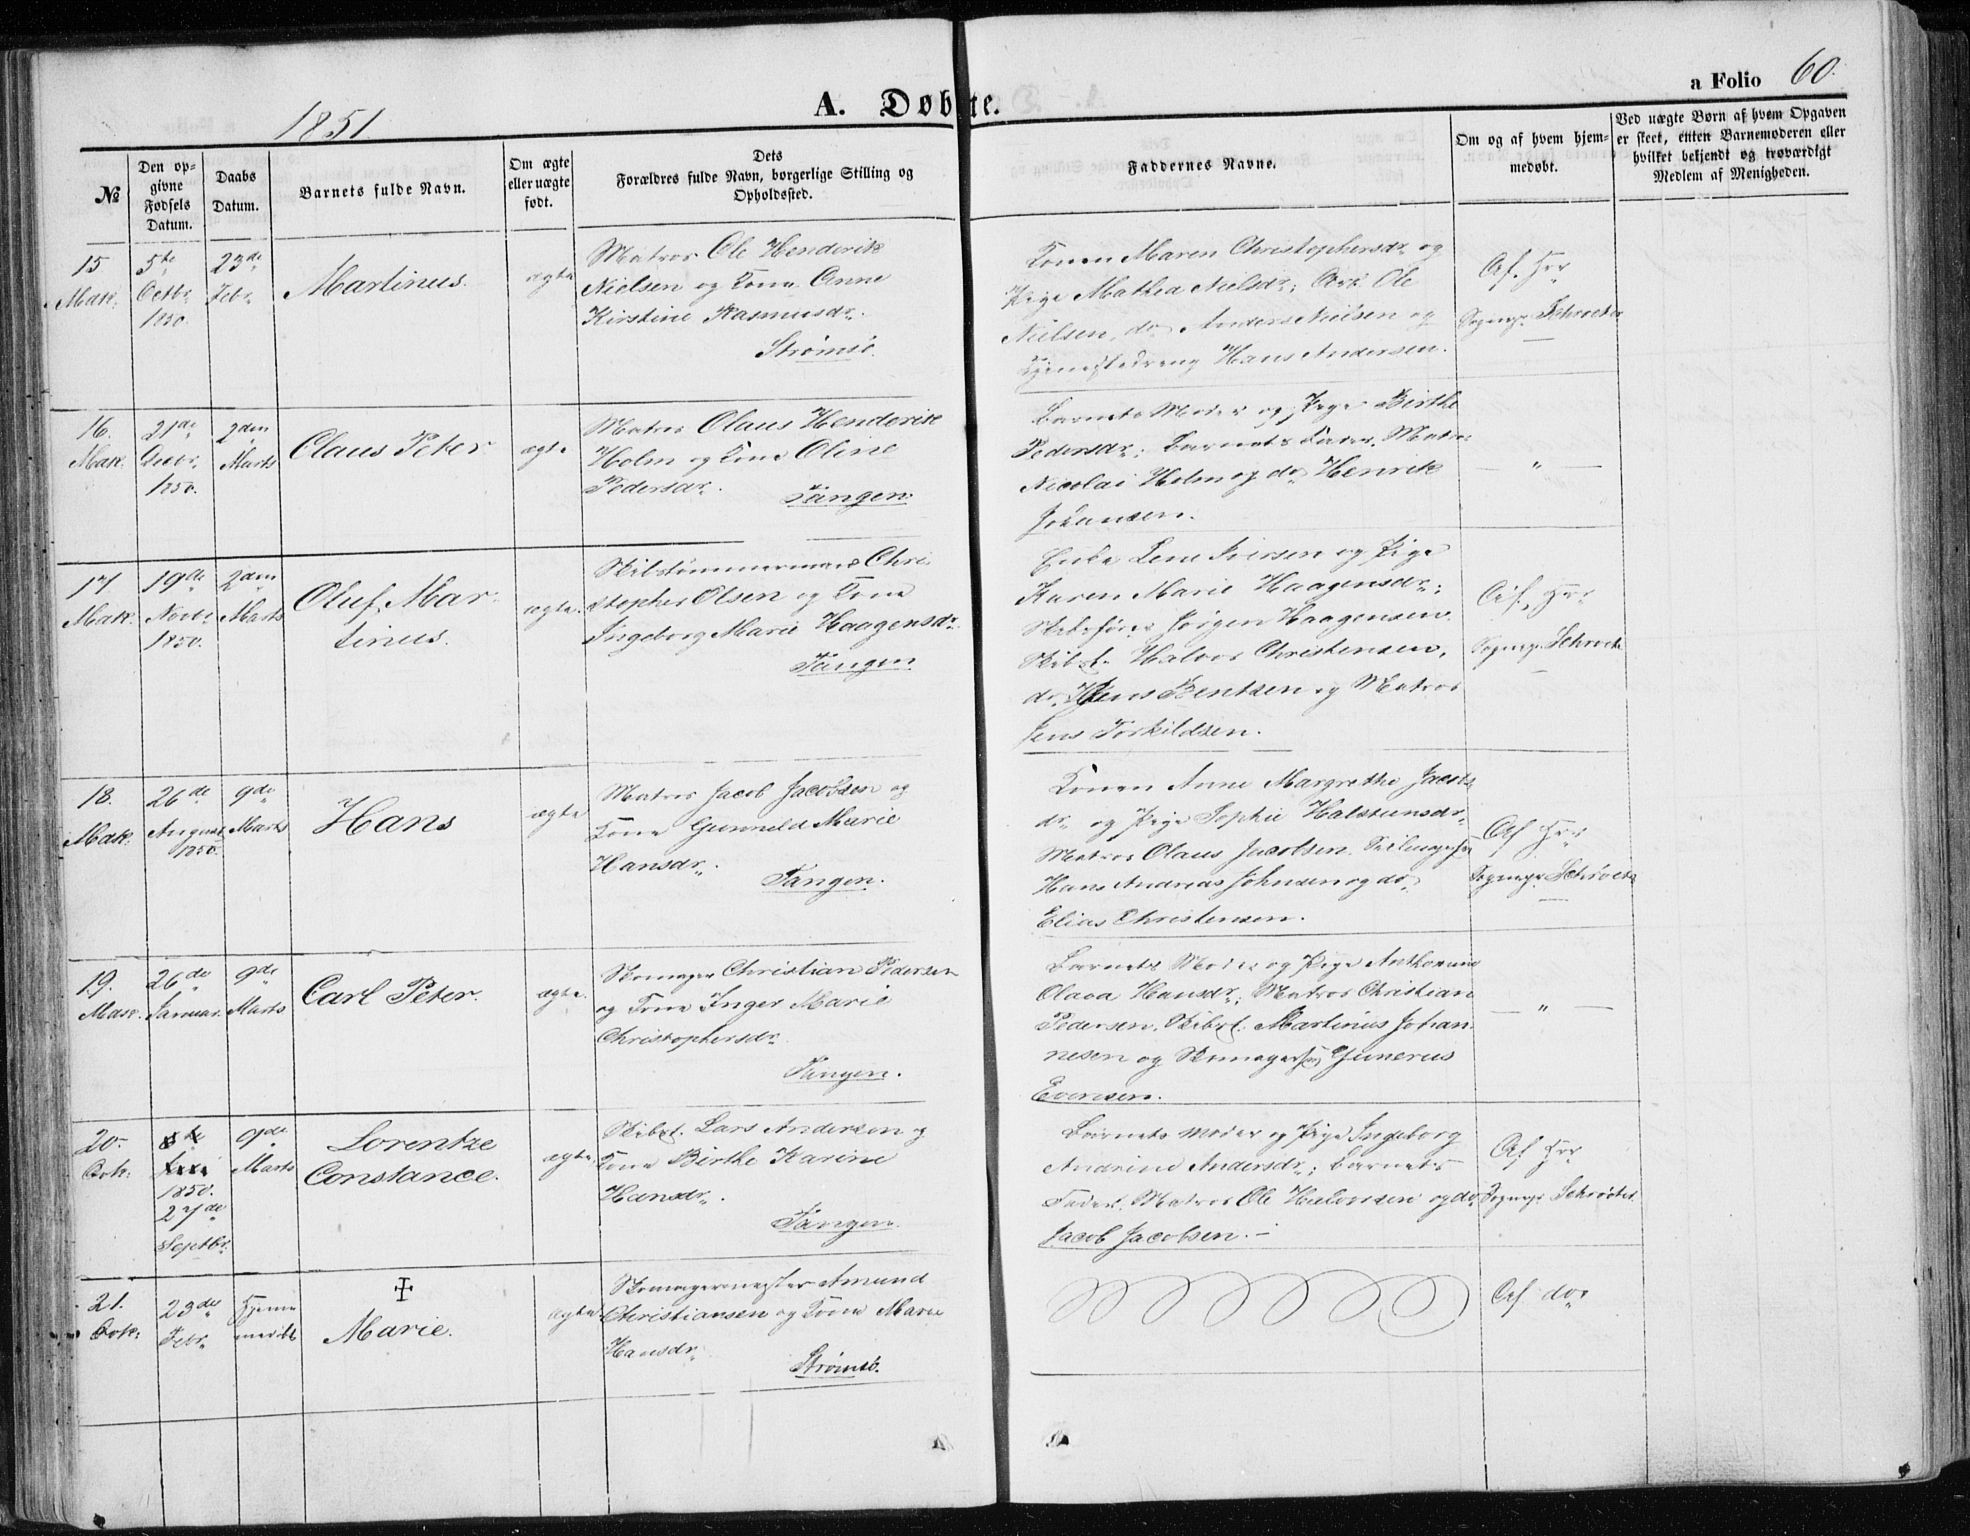 1851
A. Døbte.
a Folio 60.
№
Den opgivne Fødsels Datum.
Daabs Datum.
Barnets fulde Navn.
Om ægte eller uægte født.
Dets Forældres fulde Navn, borgerlige Stilling og Opholdssted.
Faddernes Navne.
Om og af hvem hjemmedøbt.
Ved uægte Børn af hvem Opgaven er skeet, enten Barnemoderen eller hvilket bekjendt og troværdigt Medlem af Menigheden.
15
Mak.
5te
Octbr.
1850.
23de
Febr.
Martinus.
ægte
Matros Ole Henderik
Nielsen og Kone Anne
Kirstine Rasmusdr.
Strømsø.
Konen Maren Christophersdr. og
Pige Mathea Nielsdr.; Ole
Nielsen, do Anders Nielsen og
Tjenestedreng Hans Andersen.
Af Hrr
Sognepr. Schroeter
16.
Mak.
21de
Decbr.
1850.
2den
Marts
Claus Peter
ægte
Matros Olaus Henderik
Holm og Kone Oline
Pedersdr.
Tangen.
Barnets Moder og Pige Birthe
Pedersdr.; Barnets Fader, Matr.
Nicolai Holm og do Henrik
Johansen.
— " —
17
Mak.
19de
Novbr.
1850.
2den
Marts
Oluf Mar
tinus.
ægte.
Skibstømmermand Chri
stopher Olsen og Kone
Ingeborg Marie Haagensdr.
Tangen
Enke Lene Iversen og Pige
Karen Marie Haagensdr.;
Skibsfører Jørgen Haagensen.
Skibst. Halvor Christensen,
do. Jens Bentsen og Matros
Jens Torkildsen.
Af Hrr
Sognepr. Schroeter
18.
Mak.
26de
August
1850.
9de
Marts
Hans
ægte
Matros Jacob Jacobsen og
Kone Gunneld Marie
Hansdr.
Tangen.
Konen Anne Margrethe Jacobs
dr. og Pige Sophie Halstensdr.
Matros Olaus Jacobsen.
Hans Andreas Johnsen og do
Elias Christensen.
Af Hrr
Sognepr. Schrøter
19.
Masc.
26de
Januar.
9de
Marts
Carl Peter.
ægte.
Skomager Christian Pedersen
og Kone Inger Marie
Christophersdr.
Tangen.
Barnets Moder og Pige
Olava Hansdr.; Matros Christian
Pedersen, Skibst. Martinus Johan
nesen og Skomagers. Gunerus
Evensen.
— " —
20.
1850.
27de
Septbr.
9de
Marts
Lorentze
Constance.
ægte.
Skibst. Lars Andersen og
Kone Birthe Karine
Hansdr.
Tangen.
Barnets Moder og Pige Ingeborg
Andrine Andersdr.; Barnets
Fader. Matros Ole Halvorsen og do
Jacob Jacobsen.
Af Hrr
Sognepr. Schrøter
21.
23de
Febr.
Hjemme
medøbt
Marie.
ægte
Skomagermester Amund
Christiansen og Kone Marie
Hansdr.
Strømsø.
Af do